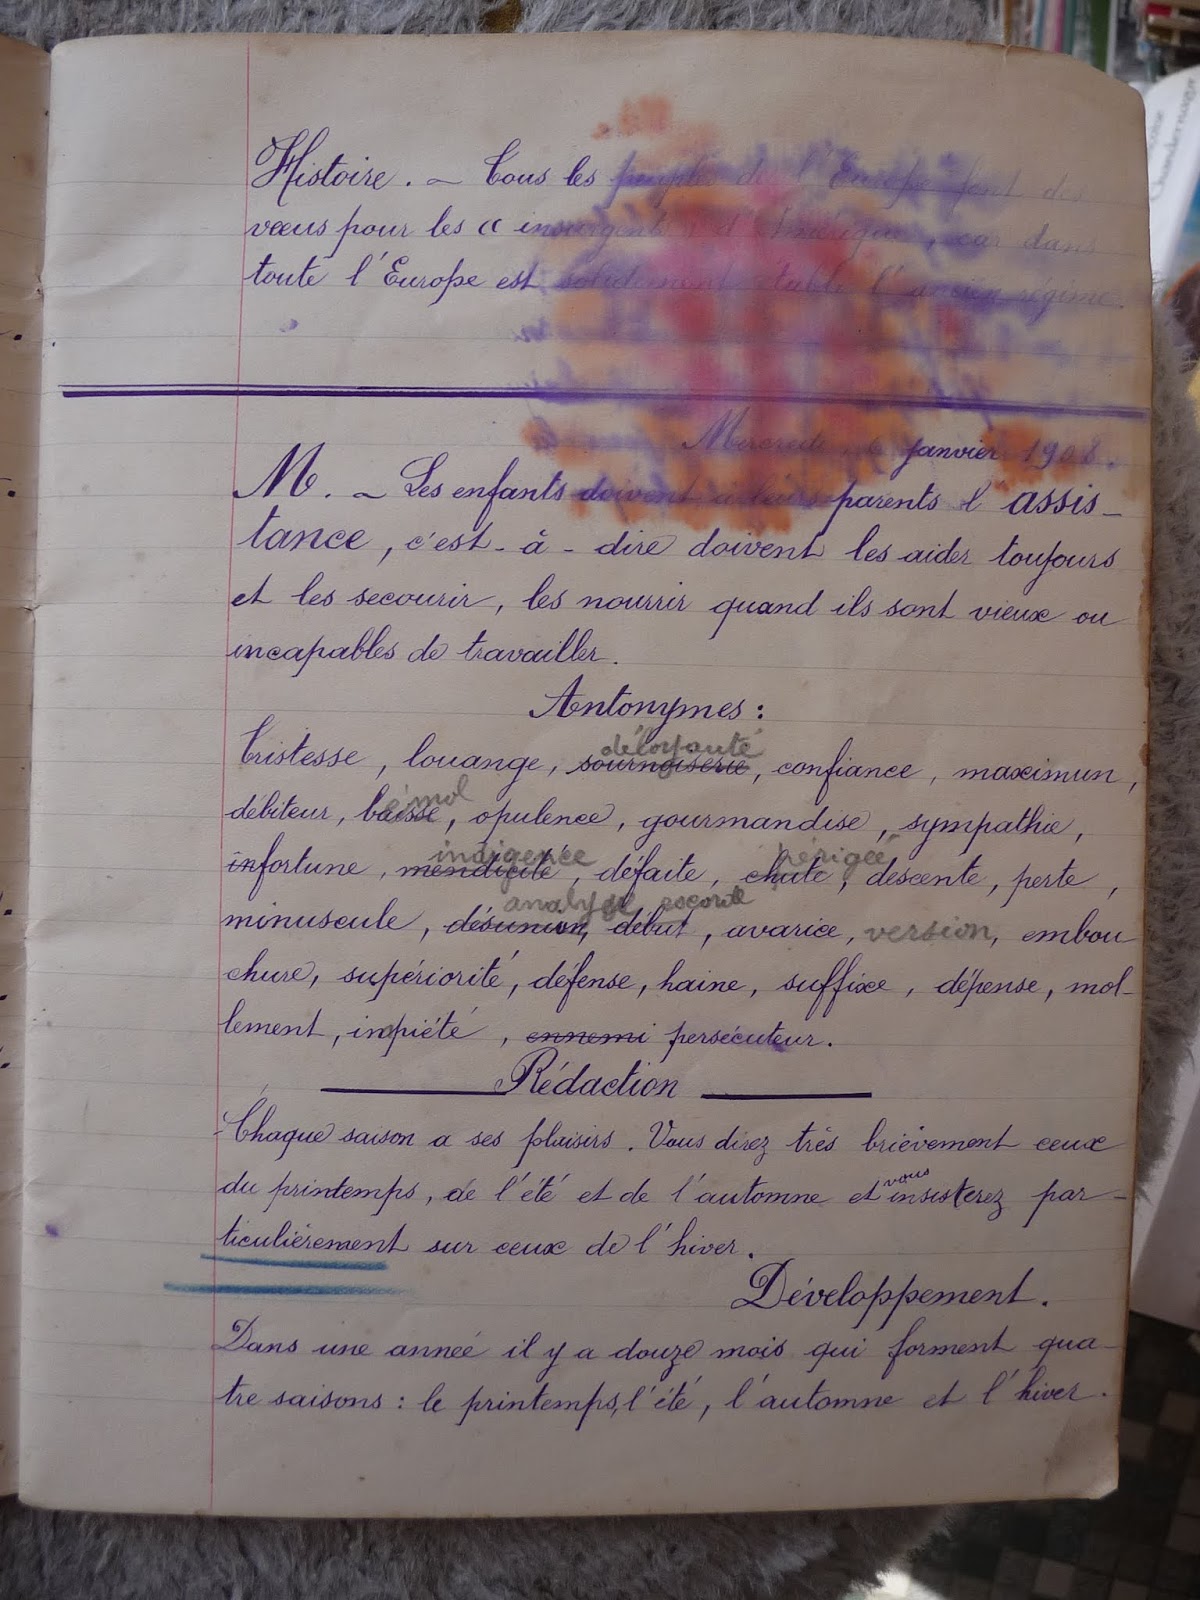 Histoire. — Tous les peuples de l'Europe font des
vœus pour les « insurgents » d'Amérique, car dans
toute l'Europe est solidement établi l'ancien régime.
Mercredi janvier 1908.
M. — Les enfants doivent à leurs parents l'assis-
tance, c'est-à-dire doivent les aider toujours
et les secourir, les nourrir quand ils sont vieux ou
incapables de travailler.
Antonymes :
déloyauté
Tristesse, louange, sournoiserie, confiance, maximun,
débiteur, baisse, opulence, gourmandise, sympathie,
indigence périgée
infortune, mendicité, défaite, chute, descente, perte,
analyse
minuscule, désunion, début, avarice, version, embou
chure, supériorité, défense, haine, suffixe, dépense, mol-
lement, inpiété, ennemi persécuteur.
Rédaction
Chaque saison a ses plaisirs. Vous direz très brièvement ceux
du printemps, de l'été et de l'automne et vous insisterez par-
ticulièrement sur ceux de l'hiver.
Développement.
Dans une année il y a douze mois qui forment qua-
tre saisons : le printemps, l'été, l'automne et l'hiver.